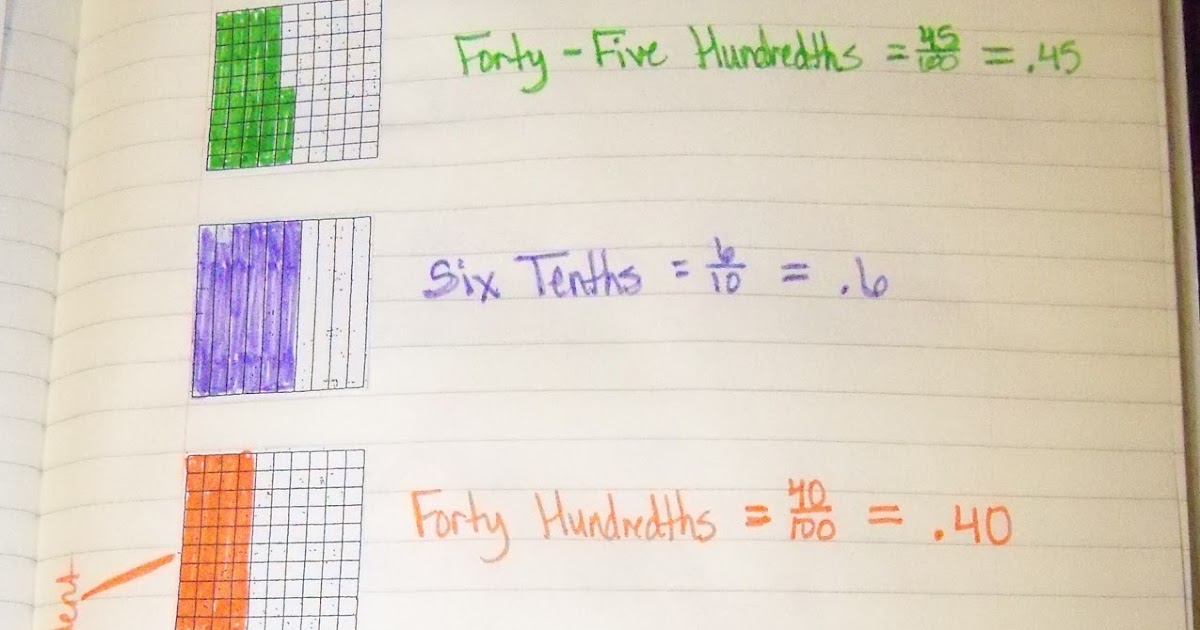 Forty-Five Hundredths = 45/100 = .45
Six Tenths = 6/10 = .6
Forty Hundredths = 40/100 = .40